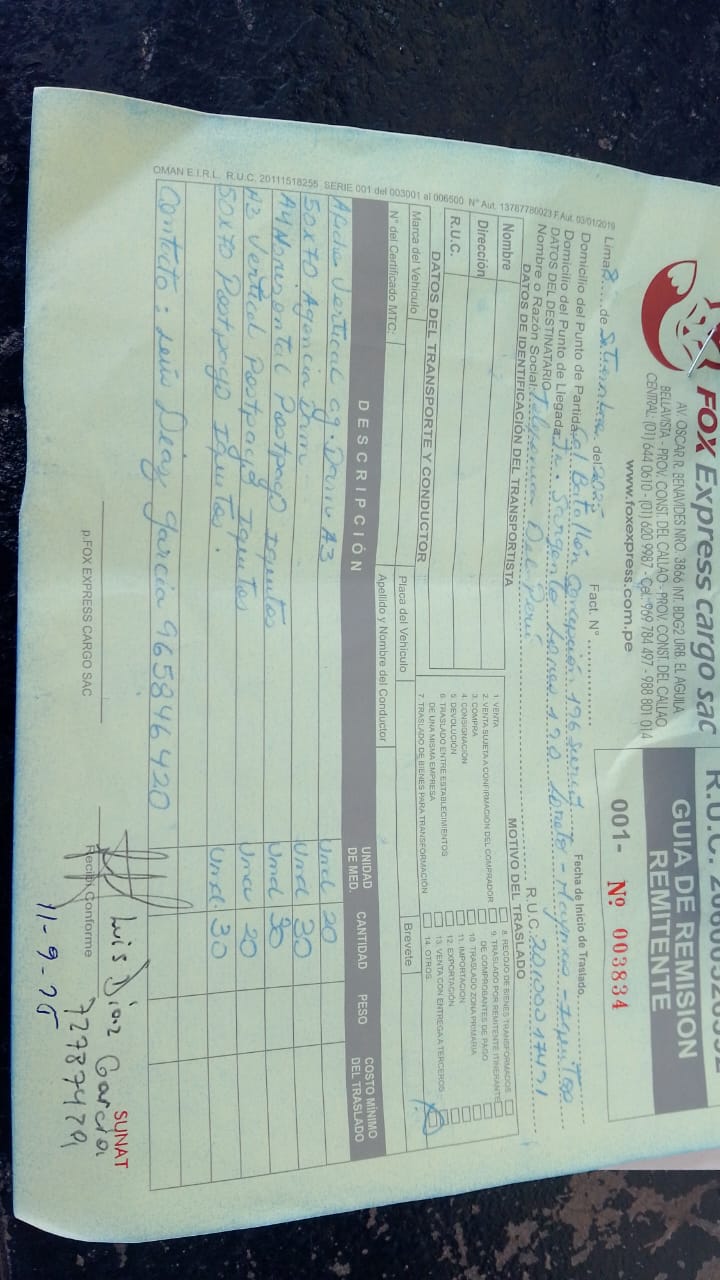 FOX Express cargo sac
AV. OSCAR R. BENAVIDES NRO. 3866 INT. BDG2 URB. EL AGUILA
BELLAVISTA - PROV. CONST. DEL CALLAO - PROV. CONST. DEL CALLAO
CENTRAL: (01) 644 0610 - (01) 620 9987 - Cel: 969 784 497 - 988 801 014
www.foxexpress.com.pe
R.U.C.
GUIA DE REMISION
REMITENTE
001- Nº 003834
Lima, de Setiembre del 2025 Fact. N°
Fecha de Inicio de Traslado
Domicilio del Punto de Partida: Batallón Concepción 196 Surco
Domicilio del Punto de Llegada: Jr. Sargento Lores 120 Loreto - Maynas - Iquitos
DATOS DEL DESTINATARIO
Nombre o Razón Social: Telefonica Del Perú R.U.C. 20100017491
DATOS DE IDENTIFICACIÓN DEL TRANSPORTISTA
Nombre
Dirección
R.U.C.
MOTIVO DEL TRASLADO
1. VENTA
2. VENTA SUJETA A CONFIRMACION DEL COMPRADOR
3. COMPRA
4. CONSIGNACIÓN
5. DEVOLUCIÓN
6. TRASLADO ENTRE ESTABLECIMIENTOS
DE UNA MISMA EMPRESA
7. TRASLADO DE BIENES PARA TRANSFORMACIÓN
8. RECOJO DE BIENES TRANSFORMADOS
9. TRASLADO POR REMITENTE ITINERANTE
DE COMPROBANTES DE PAGO
10. TRASLADO ZONA PRIMARIA
11. IMPORTACIÓN
12. EXPORTACIÓN
13. VENTA CON ENTREGA A TERCEROS
14. OTROS
DATOS DEL TRANSPORTE Y CONDUCTOR
Marca del Vehículo
Placa del Vehículo
N° del Certificado MTC:
Apellido y Nombre del Conductor
Brevete
DESCRIPCIÓN UNIDAD DE MED. CANTIDAD PESO COSTO MÍNIMO DEL TRASLADO
Afiche Vertical ag. A3 Und 20
50x70 Agencia Und 30
A4 Horizontal Postpago Iquitos Und
A3 Vertical Postpago Iquitos Und 20
50x70 Postpago Iquitos. Und 30
Contacto: Luis Diaz Garcia 965846420
p.FOX EXPRESS CARGO SAC
Recibí Conforme
Luis Díaz García
11-9-25
SUNAT
OMAN E.I.R.L. R.U.C. 20111518255 SERIE 001 del 003001 al 006500 N° Aut. 13787786023 F.Aut. 03/01/2019